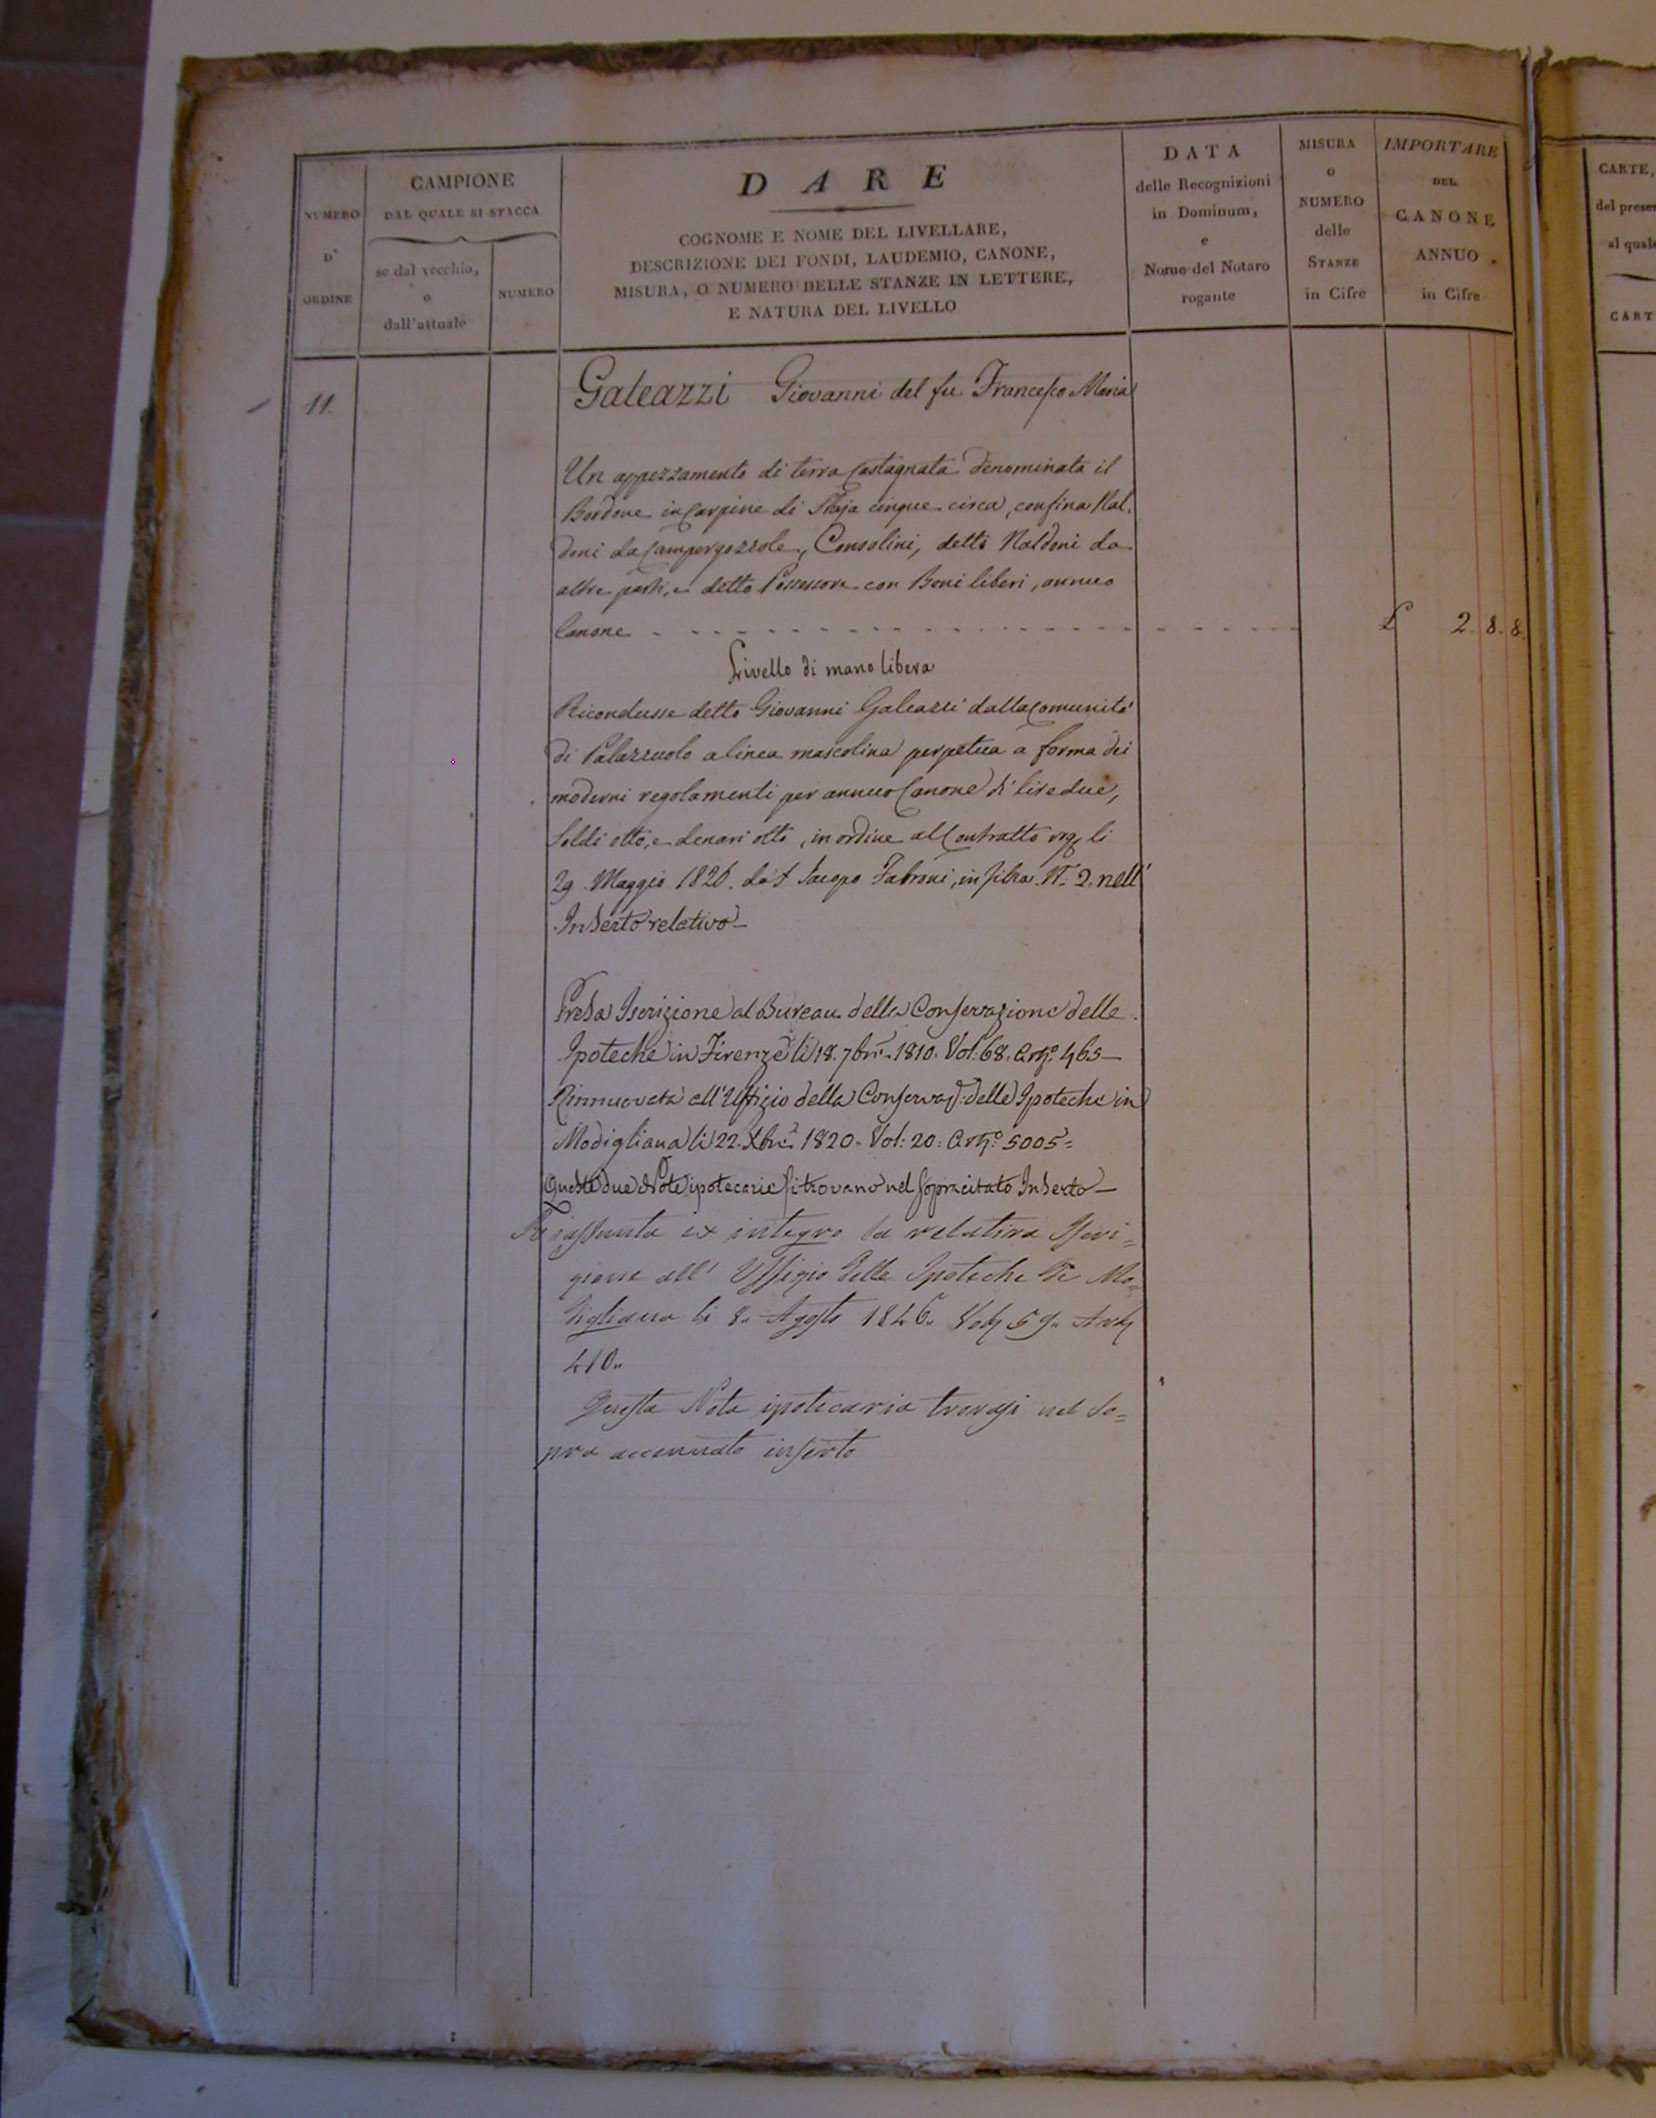 NUMERO
D'
ORDINE
CAMPIONE
DAL QUALE SI STACCA
se dal vecchio,
o
dall'attuale
NUMERO
DARE
COGNOME E NOME DEL LIVELLARE,
DESCRIZIONE DEI FONDI, LAUDEMIO, CANONE,
MISURA, O NUMERO DELLE STANZE IN LETTERE,
E NATURA DEL LIVELLO
DATA
delle Recognizioni
in Dominum,
e
Nome del Notaro
rogante
MISURA
o
NUMERO
delle
STANZE
in Cifre
IMPORTARE
DEL
CANONE
ANNUO
in Cifre
11.
Galeazzi Giovanni del fu Francesco Maria
Un appezzamento di terra Castagnata denominata il
Bordone in Carpine di Staja cinque circa, confina Nal.
doni da Campergozzole, Consolini, detto Naldoni da
altre parti, e detto Possessore con Beni liberi, annuo
Canone £ 2. 8. 8.
Livello di mano libera
Ricondusse detto Giovanni Galeazzi dalla Comunità
di Palazzuolo a linea mascolina perpetua a forma dei
moderni regolamenti per annuo Canone di lire due,
soldi otto, e denari otto, in ordine al Contratto rog. li
29. Maggio 1826. da Jacopo Fabroni, in filza N.° 2. nell'
Inserto relativo
Presa Iscrizione al Bureau della Conservazione delle
Ipoteche in Firenze li 18. 7bre. 1810. Vol: 68. Art.° 465
Rinnuovata all'Uffizio della Conservaz: delle Ipoteche in
Modigliana li 22. Xbre. 1820. Vol: 20: Art.° 5005=
Queste due Note ipotecarie si trovano nel sopracitato Inserto
Riassunta ex integro la relativa Iscri=
zione all' Uffizio delle Ipoteche di Mo=
digliana li 8. Agosto 1846. Vol 59. Art
410.
Questa Nota ipotecaria trovasi nel so=
pra accennato inserto
CARTE,
del prese
al qual
CART